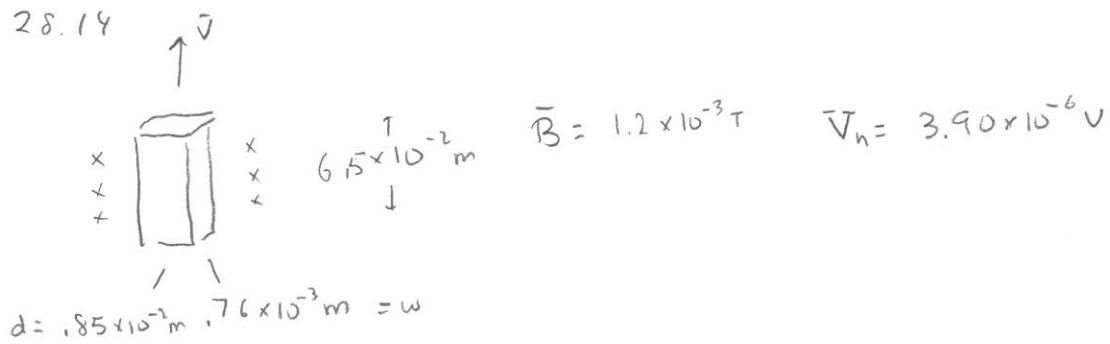 28.14
v̄
x x
x x
x x
6.5×10⁻² m
B̄ = 1.2 × 10⁻³ T
V̄ₕ = 3.90 × 10⁻⁶ V
d = .85×10⁻² m .76×10⁻³ m = w